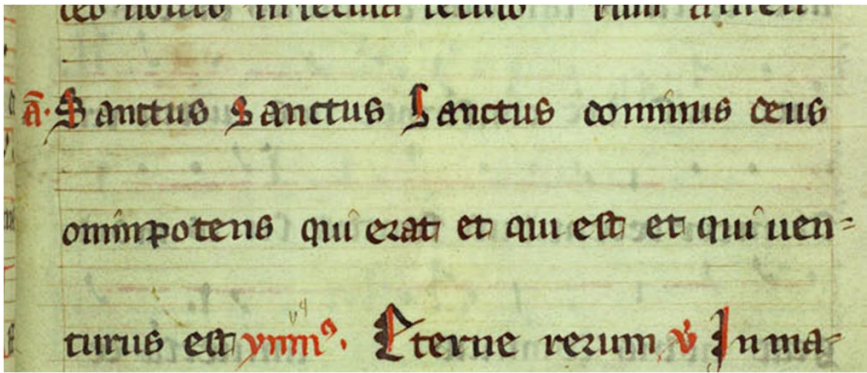 ā· Sanctus Sanctus Sanctus dominus deus
omnipotens qui erat et qui est et qui uen=
turus est ymnꝰ. Eterne rerum v̄ In ma-